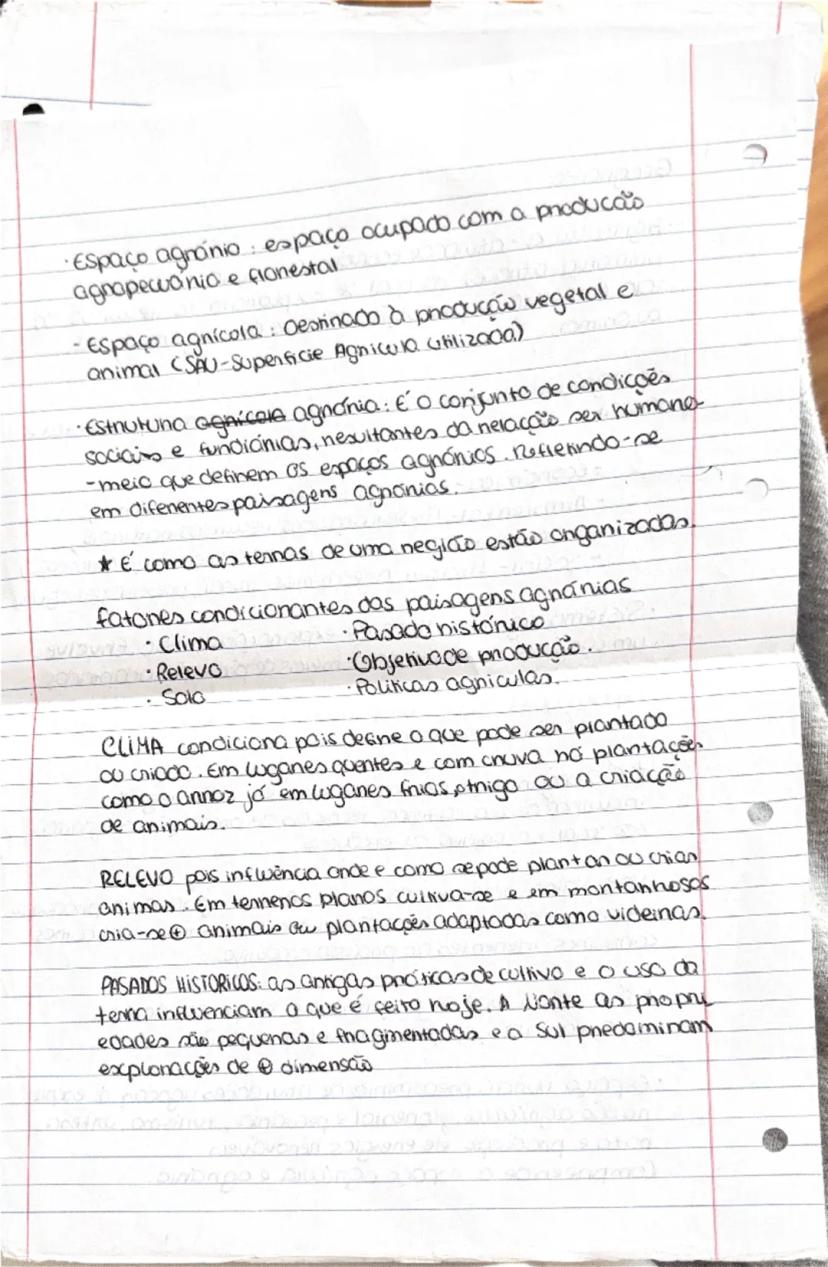 · Espaço agrário : espaço ocupado com a producão
agropecuário e florestal
- Espaço agrícola : Destinado à producção vegetal e
animal (SAU-Superficie Agricula Utilizada)
· Estrutura agrícola agrária: É o conjunto de condições
sociais e fundiárias, resultantes da relacção ser humano
-meio que definem os espaços agrários. Refletindo-se
em diferentes paisagens agrárias.
★ É como as terras de uma região estão organizadas.
fatores condicionantes das paisagens agrárias
· Clima · Passado histórico
· Relevo · Objetivo de producção.
· Solo · Politicas agriculas.
CLIMA condiciona pois define o que pode ser plantado
ou criado. Em lugares quentes e com chuva há plantações
como o arroz já em lugares frios, o trigo ou a criacção
de animais.
RELEVO pois influência onde e como se pode plantar ou criar
animas. Em terrenos planos cultiva-se e em montanhosos
cria-se ⊕ animais ou plantacções adaptadas como videiras.
PASADOS HISTORICOS: as antigas práticas de cultivo e o uso da
terra influenciam o que é feito hoje. A Norte as propri
edades são pequenas e fragmentadas e a Sul predominam
explorações de ⊕ dimensão